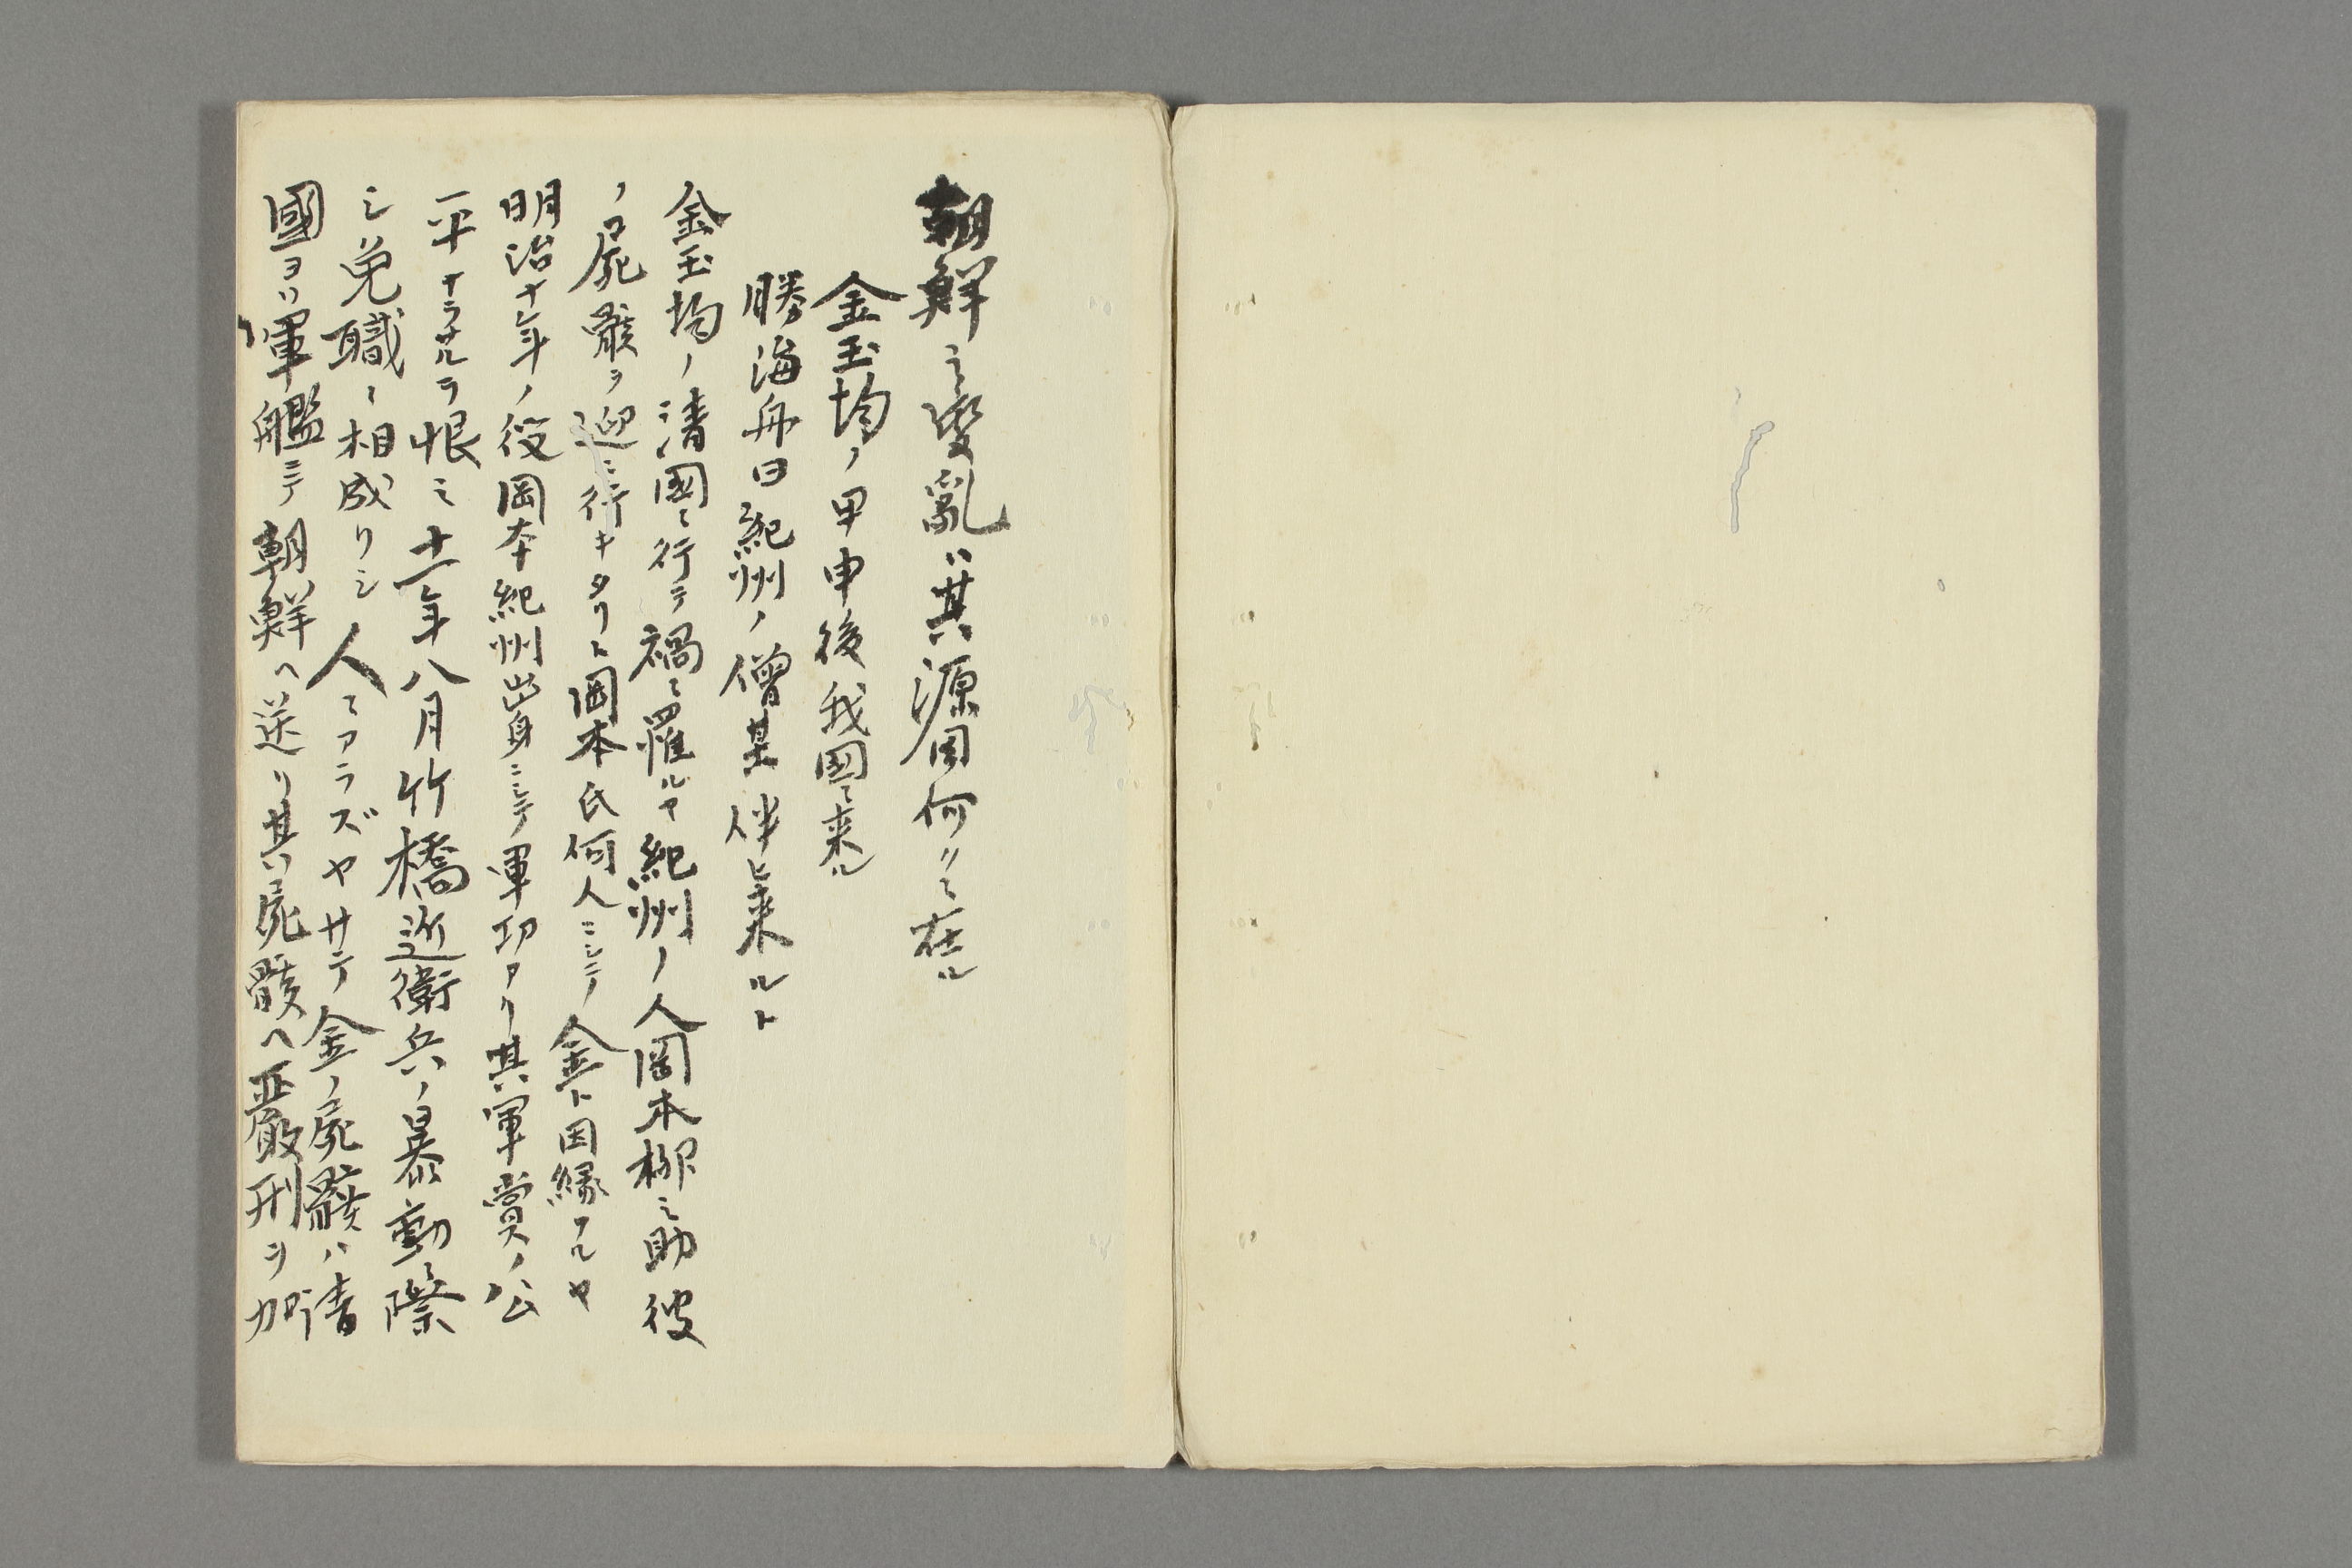 朝鮮之變亂ハ其源因何クニ在ル
金玉均ノ甲申後我国ニ来ル
勝海舟曰紀州ノ僧某伴ヒ来ルト
金玉均ノ清國ニ行テ禍ニ罹ルヤ紀州ノ人岡本柳之助彼
ノ屍骸ヲ迎ニ行キタリト岡本氏何人ニシテ金ト因縁アルヤ
明治十年ノ役岡本紀州出身ニシテ軍功アリ其軍賞ノ公
平ナラサルヲ恨ミ十一年八月竹橋近衛兵ノ暴動ニ際
シ免職ニ相成リシ人ニアラズヤサテ金ノ屍骸ハ清
國ヨリ軍艦ニテ朝鮮ヘ送リ其屍骸ヘ嚴刑ヲ加